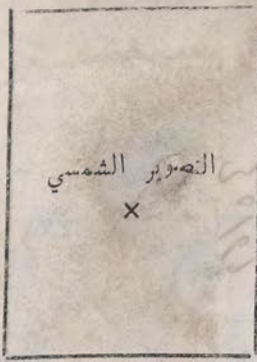 التصوير الشمسي
×